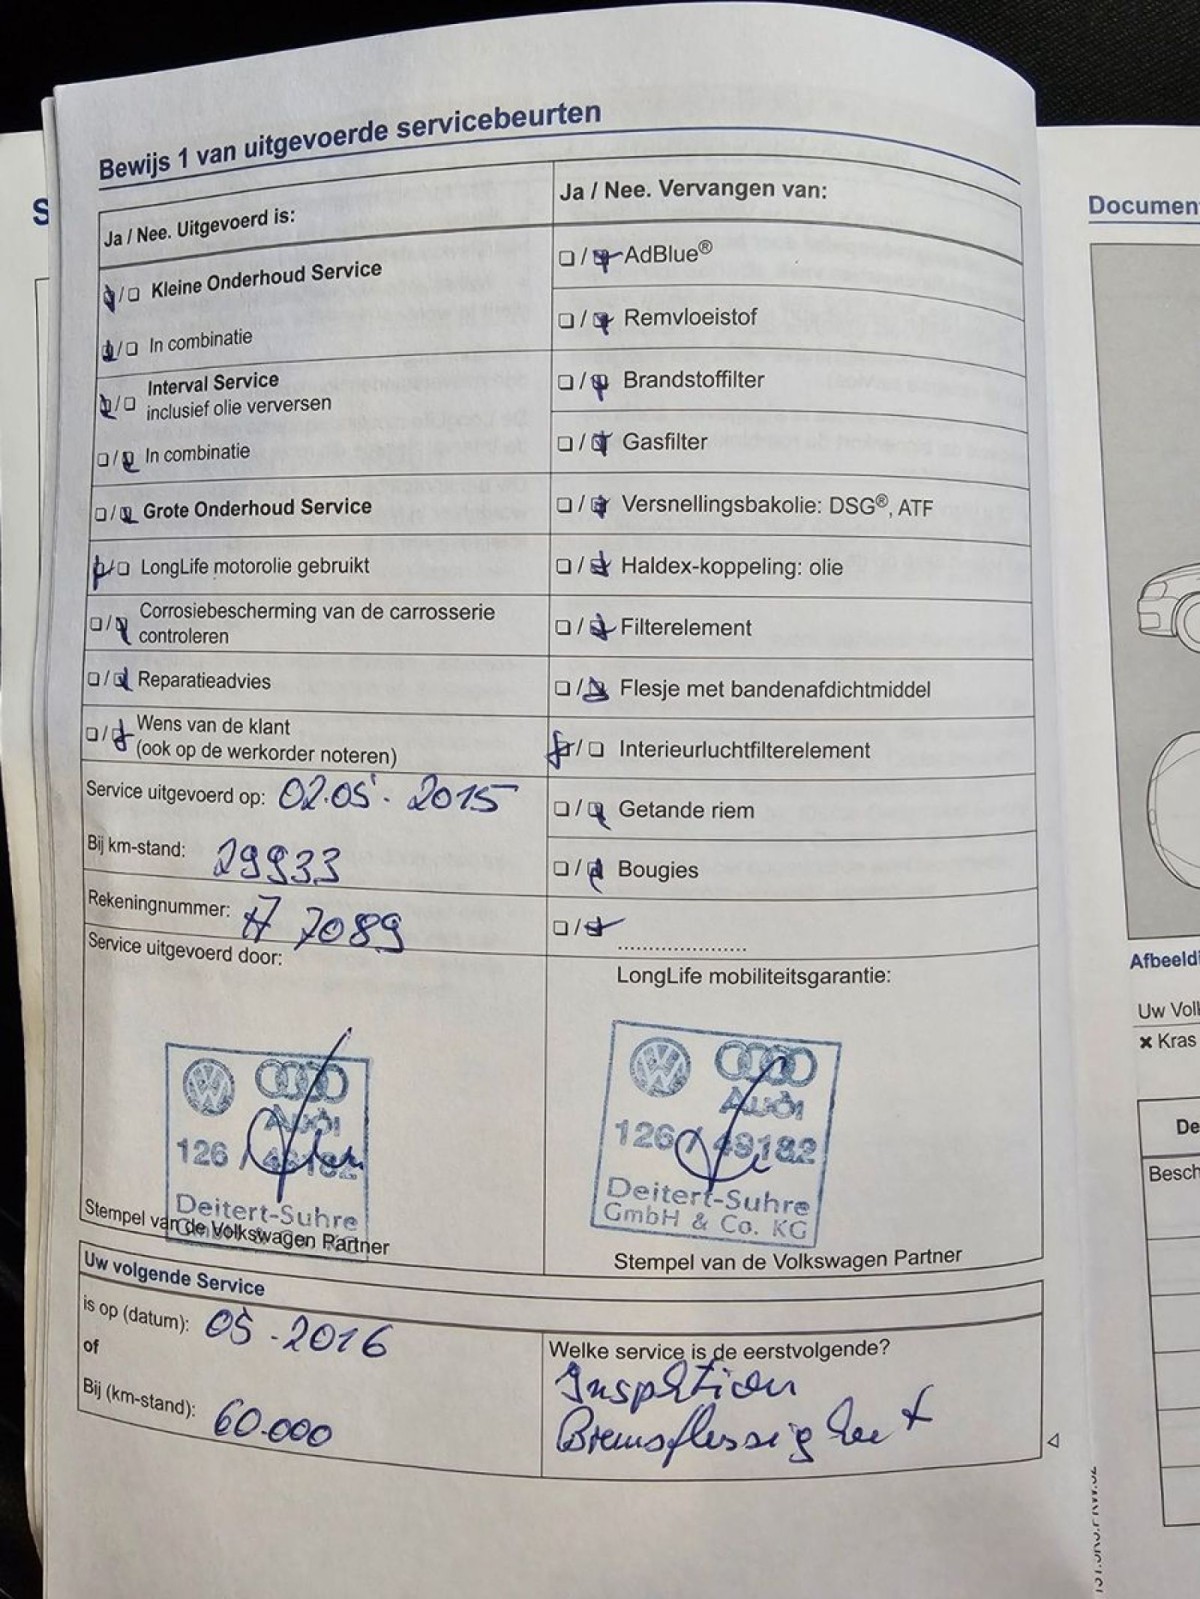 Bewijs 1 van uitgevoerde servicebeurten
Ja / Nee. Uitgevoerd is:
Kleine Onderhoud Service
In combinatie
Interval Service
inclusief olie verversen
In combinatie
Grote Onderhoud Service
LongLife motorolie gebruikt
Corrosiebescherming van de carrosserie
controleren
Reparatieadvies
Wens van de klant
(ook op de werkorder noteren)
Service uitgevoerd op: 02.05.2015
Bij km-stand: 29933
Rekeningnummer: A 7089
Service uitgevoerd door:
AUDI
126 / 49182
Deitert-Suhre
Stempel van de Volkswagen Partner
Ja / Nee. Vervangen van:
AdBlue®
Remvloeistof
Brandstoffilter
Gasfilter
Versnellingsbakolie: DSG®, ATF
Haldex-koppeling: olie
Filterelement
Flesje met bandenafdichtmiddel
Interieurluchtfilterelement
Getande riem
Bougies
....................
LongLife mobiliteitsgarantie:
AUDI
126 / 49182
Deitert-Suhre
GmbH & Co. KG
Stempel van de Volkswagen Partner
Uw volgende Service
is op (datum): 05-2016
of
Bij (km-stand): 60.000
Welke service is de eerstvolgende?
Inspektion
Bremsflüssigkeit
S
Documen
Afbeeldi
Uw Vol
Kras
De
Besch